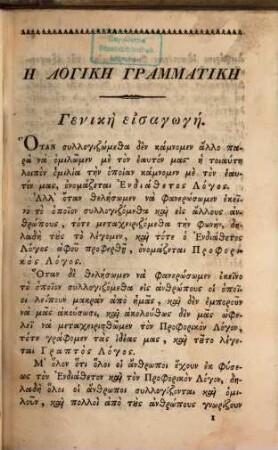 Bayerische
Staatsbibliothek
München
Η ΛΟΓΙΚΗ ΓΡΑΜΜΑΤΙΚΗ
Γενικὴ εἰσαγωγή.
Ὅταν συλλογιζόμεθα δὲν κάμνομεν ἄλλο πα-
ρὰ νὰ ὁμιλῶμεν μὲ τὸν ἑαυτόν μας· ἡ τοιαύτη
λοιπὸν ὁμιλία τὴν ὁποίαν κάμνομεν μὲ τὸν ἑαυ-
τόν μας, ὀνομάζεται Ἐνδιάθετος Λόγος.
Ἀλλ' ὅταν θελήσωμεν νὰ φανερώσωμεν ἐκεῖ-
νο τὸ ὁποῖον συλλογιζόμεθα καὶ εἰς ἄλλους ἀν-
θρώπους, τότε μεταχειριζόμεθα τὴν φωνήν, δη-
λαδὴ τῆς τὸ λέγομεν, καὶ τότε ὁ Ἐνδιάθετος
Λόγος ἀφοῦ προφερθῇ, ὀνομάζεται Προφορι-
κὸς Λόγος.
Ὅταν δὲ θελήσωμεν νὰ φανερώσωμεν ἐκεῖνο
τὸ ὁποῖον συλλογιζόμεθα εἰς ἀνθρώπους οἱ ὁποῖ-
οι λείπουν μακρὰν ἀπὸ ἡμᾶς, καὶ δὲν ἐμποροῦν
νὰ μας ἀκούσωσι, καὶ ἀκολούθως δὲν μᾶς ὠφε-
λεῖ νὰ μεταχειρισθῶμεν τὸν Προφορικὸν Λόγον,
τότε γράφομεν τὰς ἰδέας μας, καὶ τότο λέγε-
ται Γραπτὸς Λόγος.
Μ' ὅλον ὅτι ὅλοι οἱ ἄνθρωποι ἔχουν ἐκ φύσεως
τὸν Ἐνδιάθετον καὶ τὸν Προφορικὸν Λόγον, δη-
λαδὴ ὅλοι οἱ ἄνθρωποι συλλογίζονται καὶ ὁμι-
λοῦν, καὶ πολλοὶ ἀπὸ τῆς ἀνθρώπους γνωρίζουν
1